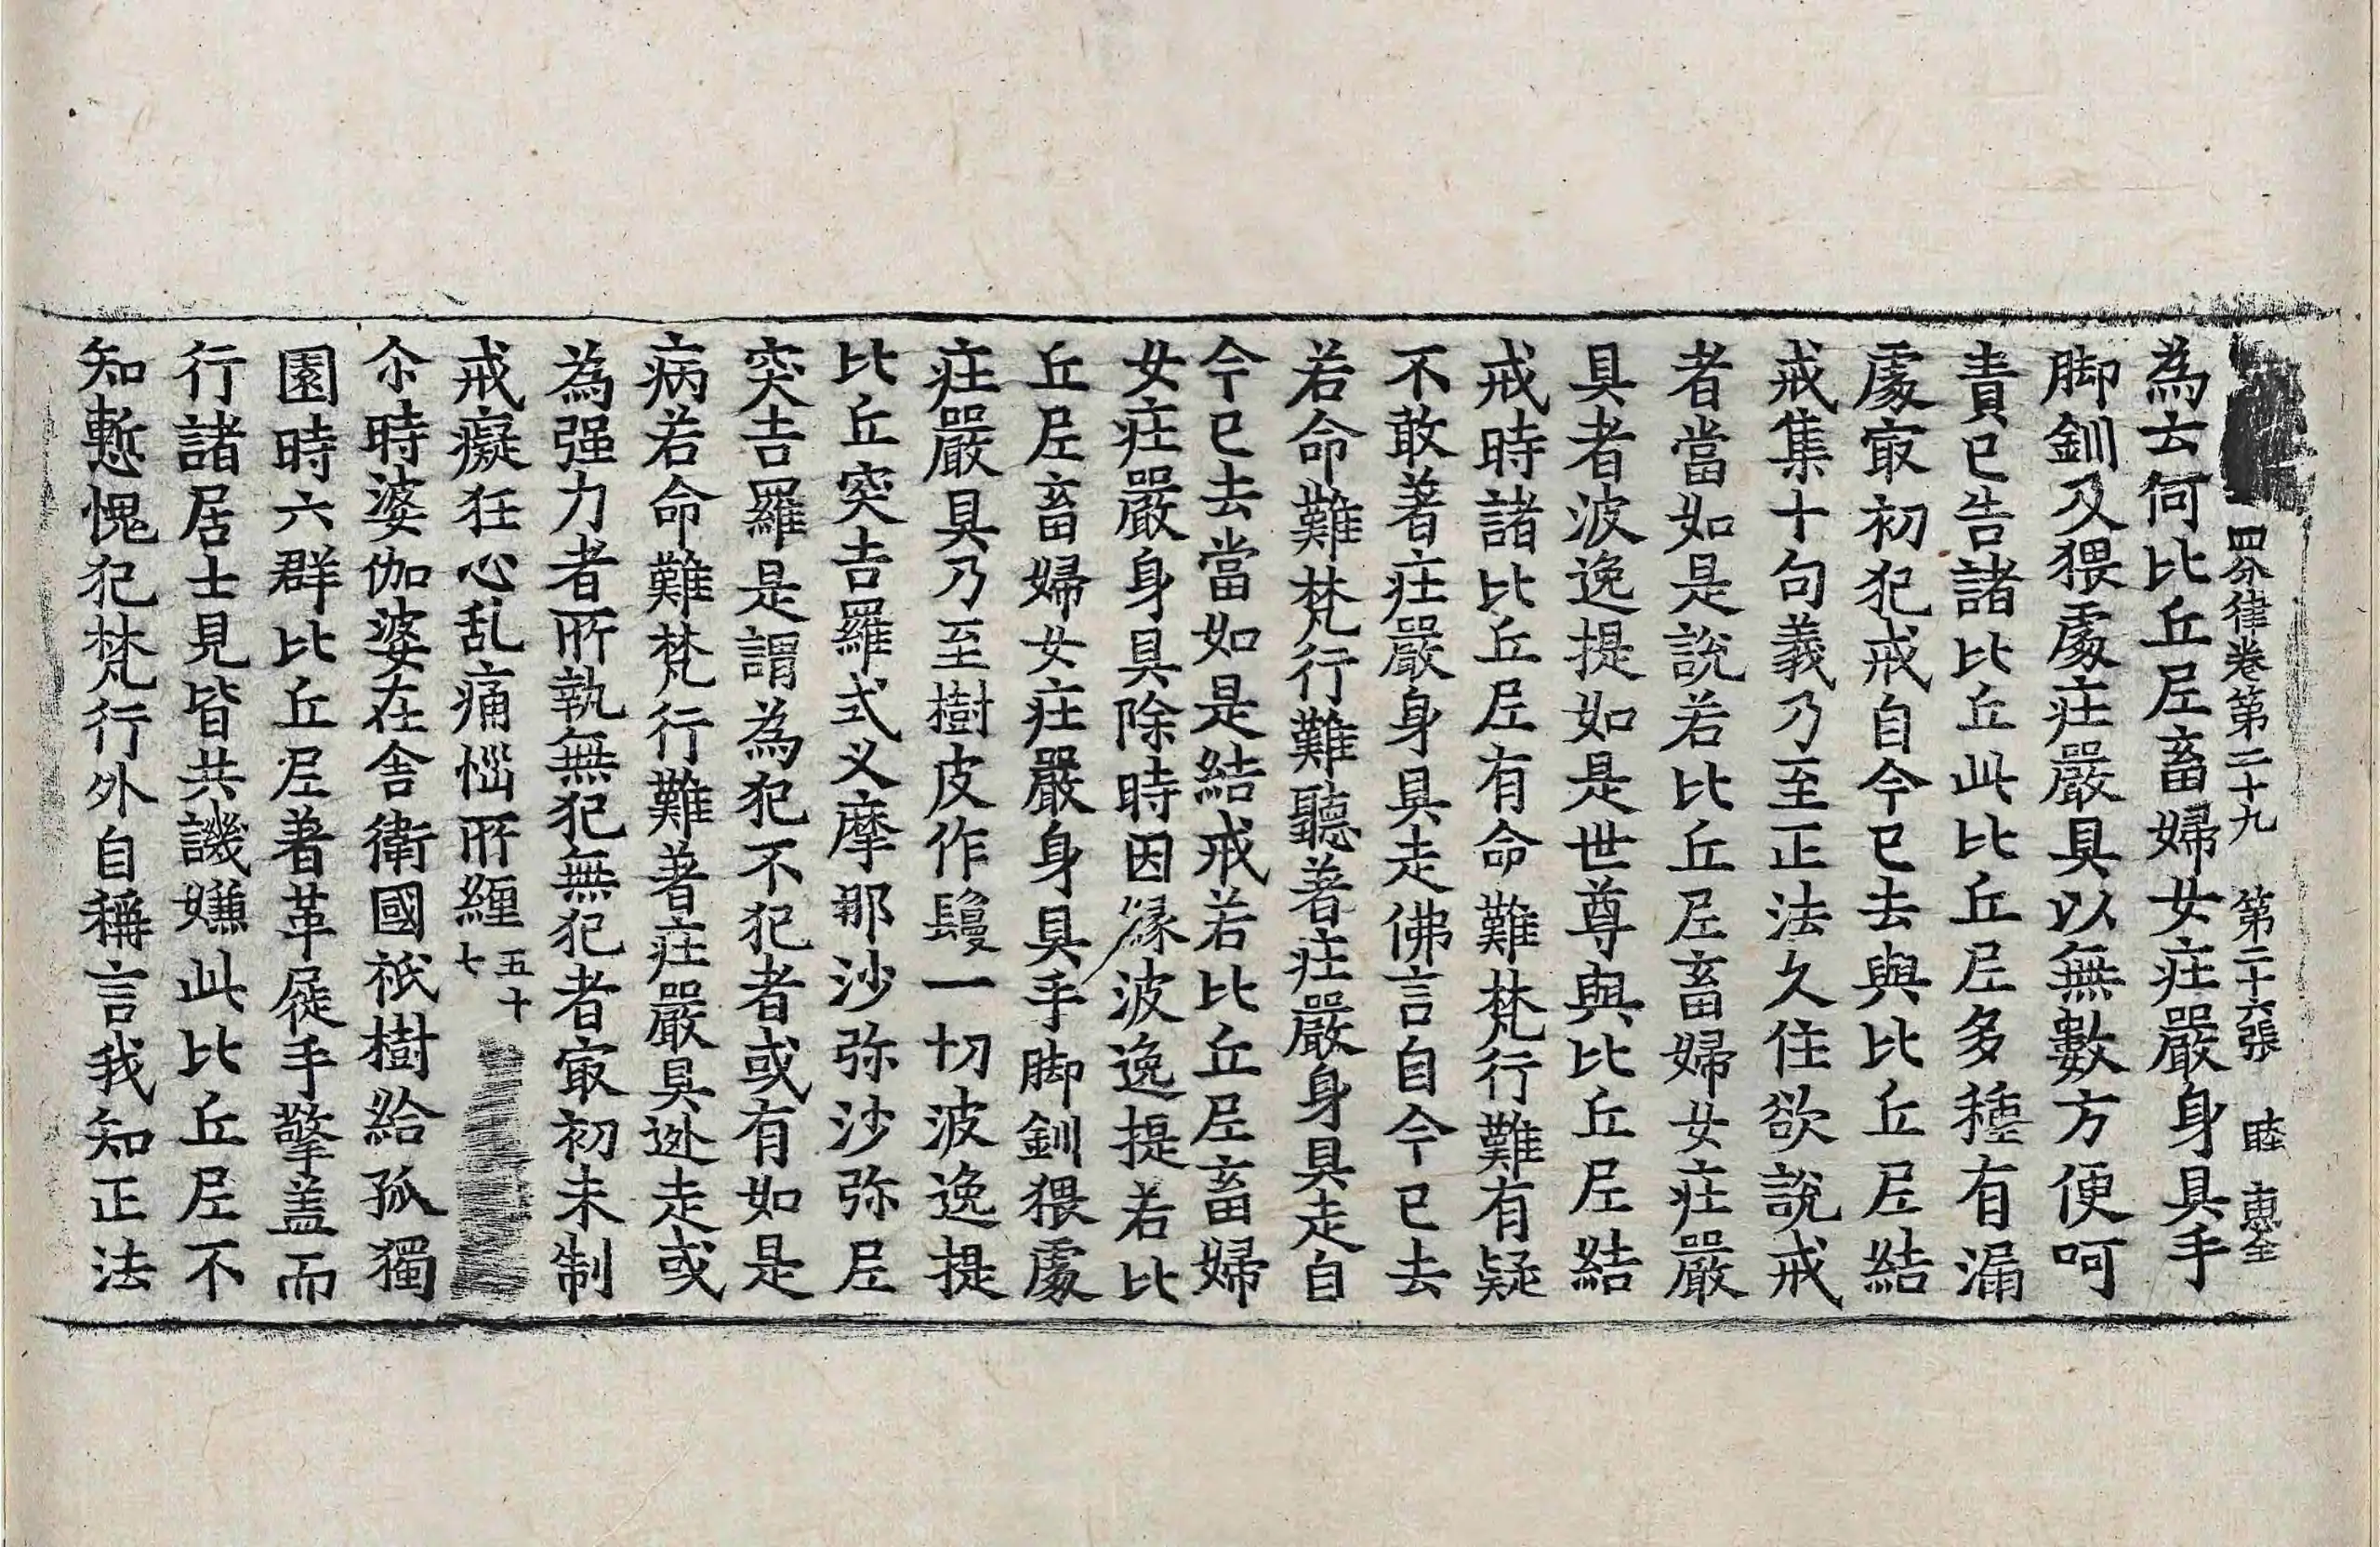 四分律卷第二十九　第二十六張　睦　惠全
為去何比丘尼畜婦女庄嚴身具手
脚釧及猥處庄嚴具以無數方便呵
責已告諸比丘此比丘尼多種有漏
處冣初犯戒自今已去與比丘尼結
戒集十句義乃至正法久住欲說戒
者當如是說若比丘尼畜婦女庄嚴
具者波逸提如是世尊與比丘尼結
戒時諸比丘尼有命難梵行難有疑
不敢著庄嚴身具走佛言自今已去
若命難梵行難聽著庄嚴身具走自
今已去當如是結戒若比丘尼畜婦
女庄嚴身具除時因緣波逸提若比
丘尼畜婦女庄嚴身具手脚釧猥處
庄嚴具乃至樹皮作鬘一切波逸提
比丘突吉羅式叉摩那沙弥沙弥尼
突吉羅是謂為犯不犯者或有如是
病若命難梵行難著庄嚴具逃走或
為强力者所執無犯無犯者冣初未制
戒癡狂心乱痛惱所纏五十七
尒時婆伽婆在舍衛國祇樹給孤獨
園時六群比丘尼著革屣手擎盖而
行諸居士見皆共譏嫌此比丘尼不
知慙愧犯梵行外自稱言我知正法